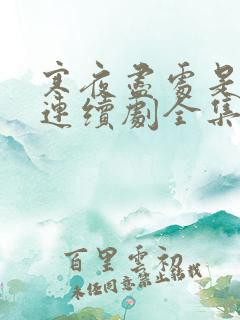 寒夜盡雪杲
連續劇全集
百里雲初
未經同意禁止轉載